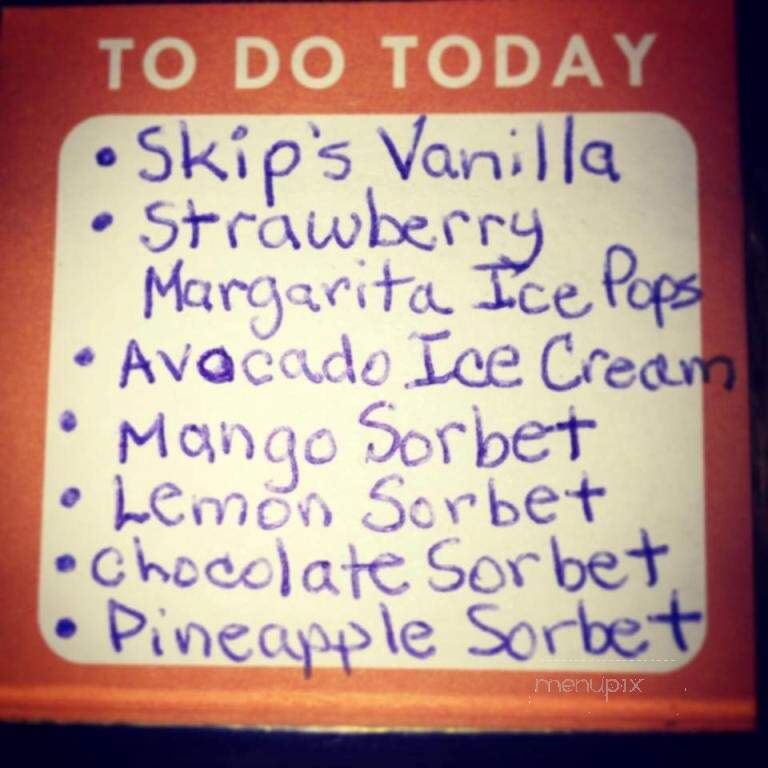 TO DO TODAY
• Skip's Vanilla
• Strawberry
Margarita Ice Pops
• Avocado Ice Cream
• Mango Sorbet
• Lemon Sorbet
• Chocolate Sorbet
• Pineapple Sorbet
menupix